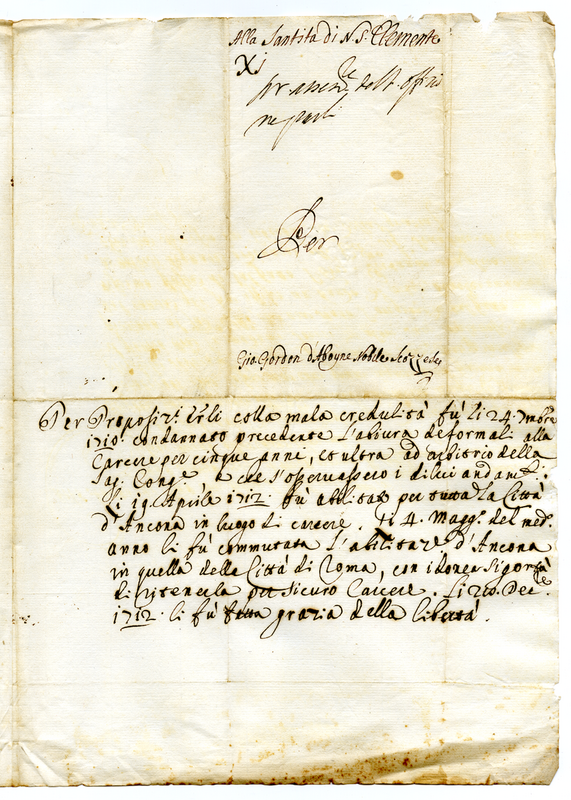 Alla Santità di N. S. Clemente
XI
Per
Gio. Gordon d'Aboyne Nobile Scozzese
Per Proposiz.i colla mala credulità fù li 24. Nmbre
1710. condannato precedente l'abiura de formali alla
Carcere per cinque anni, et ultra ad arbitrio della
Sag. Cong.e, e che s'osservassero i
li 19. Aprile 1712. fu abilitato per tutta la Città
d'Ancona in luogo di carcere. Li 4. Magg.o del med.o
anno li fù commutata l'abilitaz.e d'Ancona
in quella della Città di Roma, con idonea sigortà
di ritenerla per sicuro Carcere. Li 20. Dec.
1712. li fù fatta grazia della libertà.